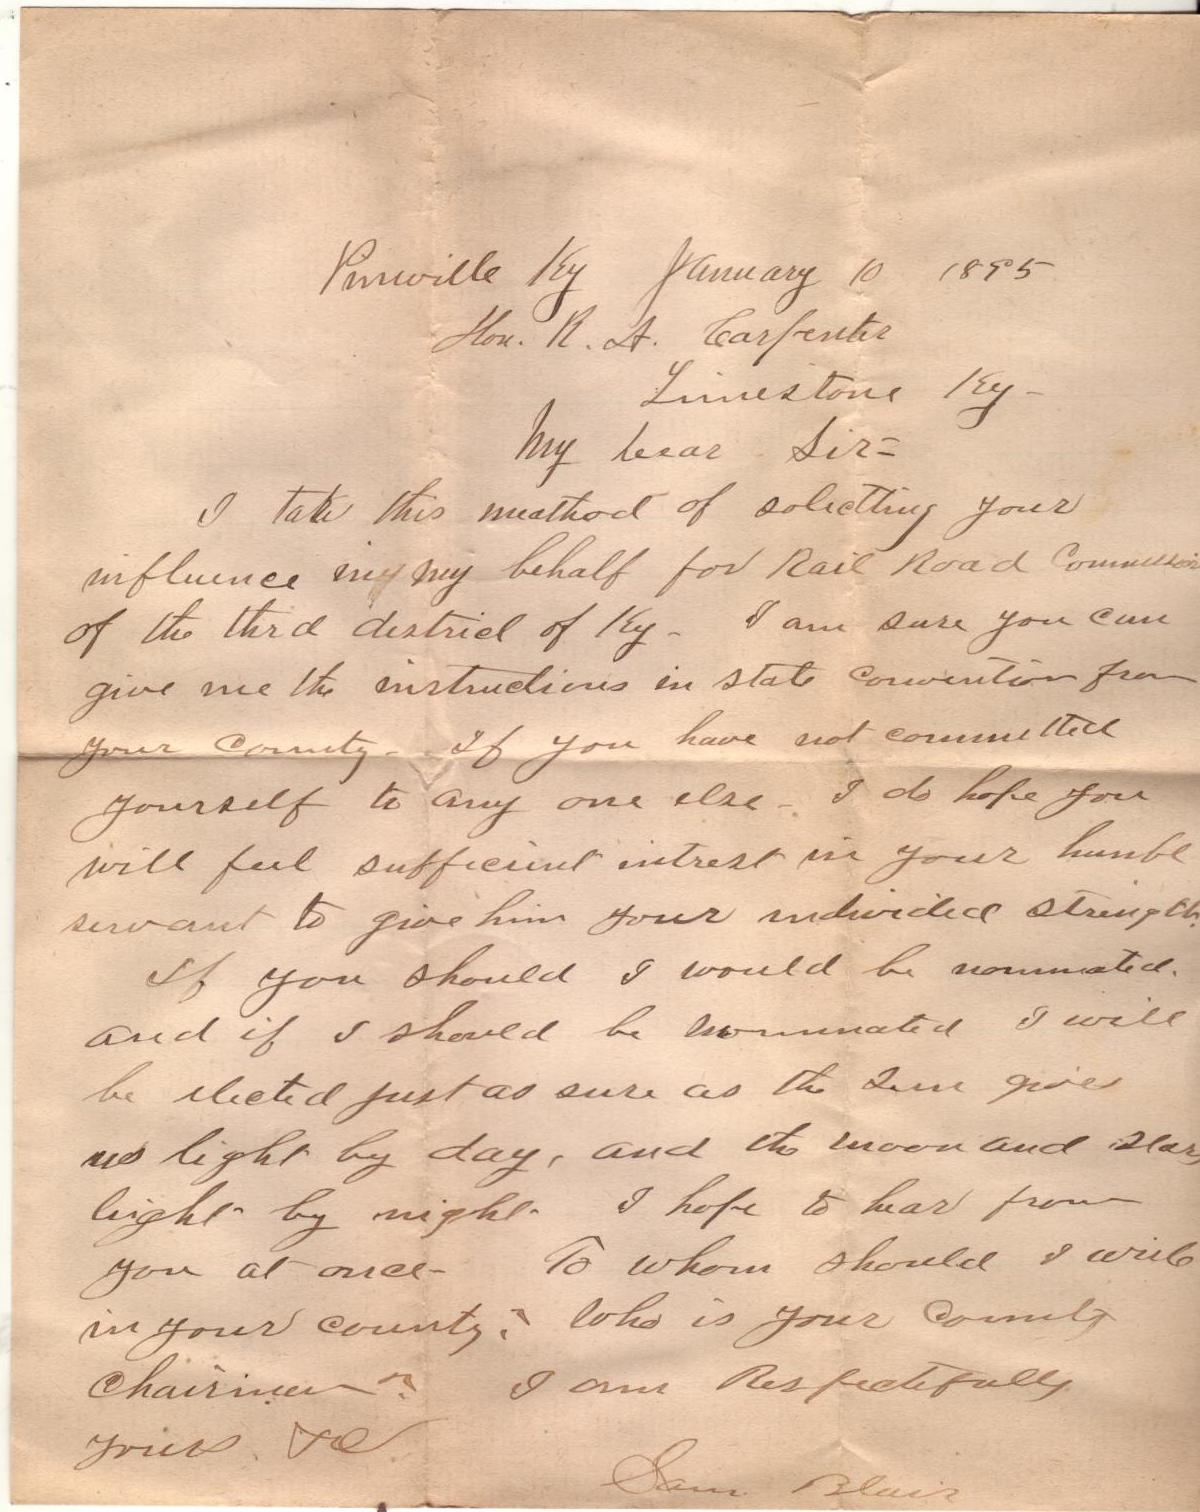 Pineville Ky January 10 1895
Hon. R. A. Carpenter
Limestone Ky -
My Dear Sir =
I take this meathod of solictting your
influence in my behalf for Rail Road Commission
of the third district of Ky - I am sure you can
give me the instructions in state convention from
your County - If you have not committed
yourself to any one else - I do hope you
will feel sufficient intrest in your humbl
servant to give him your undivided strength.
If you should I would be nominated.
and if I should be nominated I will
be elected just as sure as the Sun gives
us light by day, and the moon and stars
light by night - I hope to hear from
you at once - To whom should I write
in your county? Who is your County
Chairman? I am Respectefully
yours &C.
Sam Blair